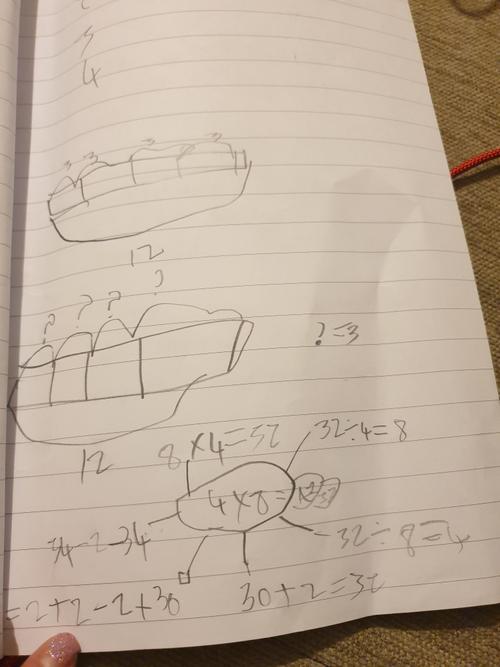 3
4
3 3 3 3
12
? ? ? ?
? = 3
12
8 × 4 = 32
32 ÷ 4 = 8
4 × 8 =
34 - 2 - 34
32 ÷ 8 = 4
= 2 + 2 - 2 + 30
30 + 2 = 32